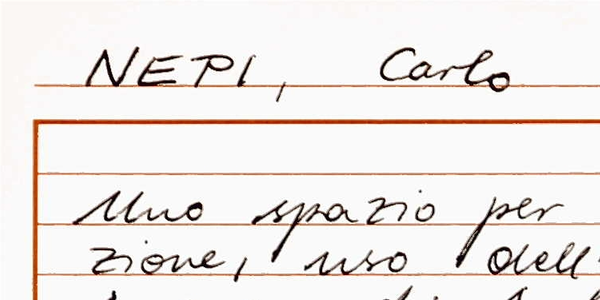 NEPI, Carlo
Uno spazio per
zione, uso dell'